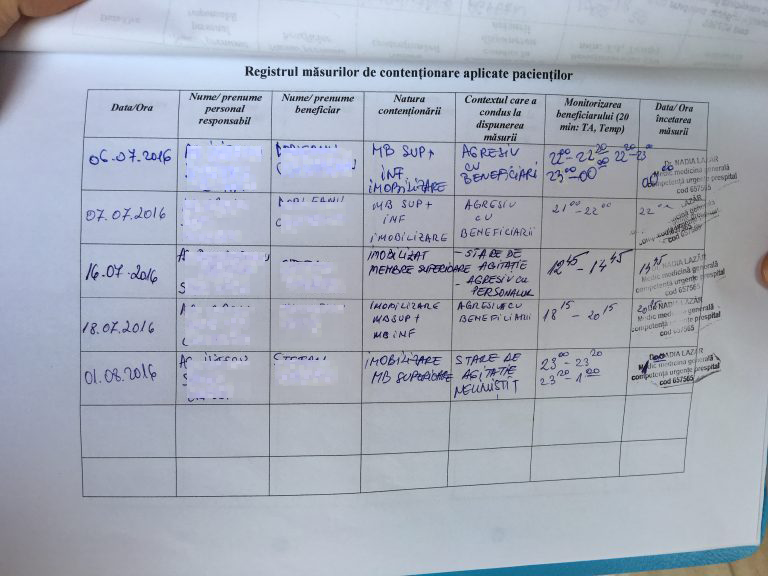 Registrul măsurilor de contenționare aplicate pacienților
Data/Ora
Nume/ prenume
personal
responsabil
Nume/ prenume
beneficiar
Natura
contenționării
Contextul care a
condus la
dispunerea
măsurii
Monitorizarea
beneficiarului (20
min: TA, Temp)
Data/ Ora
încetarea
măsurii
06.07.2016
MB SUP+
INF
IMOBILIZARE
AGRESIV
CU
BENEFICIARI
22⁰⁰-22²⁰ 22²⁰-23⁰⁰
23⁰⁰-00⁰⁰
00⁰⁰
Dr. NADIA LAZAR
Medic medicina generală
competența urgențe prespital
cod 657565
07.07.2016
MB SUP+
INF
IMOBILIZARE
AGRESIV
CU
BENEFICIARII
21⁰⁰-22⁰⁰
LAZAR
cod 657565
16.07.2016
IMOBILIZAT
MEMBRE SUPERIOARE
- STARE DE
AGITATIE
- AGRESIV CU
PERSONALUL
12⁴⁵-14⁴⁵
LAZĂR
Medic medicină generală
competența urgențe prespital
cod 657565
18.07.2016
IMOBILIZARE
MB SUP+
MB INF
AGRESIV CU
BENEFICIARII
18¹⁵ - 20¹⁵
20¹⁵
NADIA LAZĂR
Medic medicină generală
competența urgențe prespital
cod 657565
01.08.2016
IMOBILIZARE
MB SUPERIOARE
STARE DE
AGITATIE
NELINISTIT
23⁰⁰-23²⁰
23²⁰-1⁰⁰
NADIA LAZĂR
Medic medicină generală
competența urgențe prespital
cod 657565